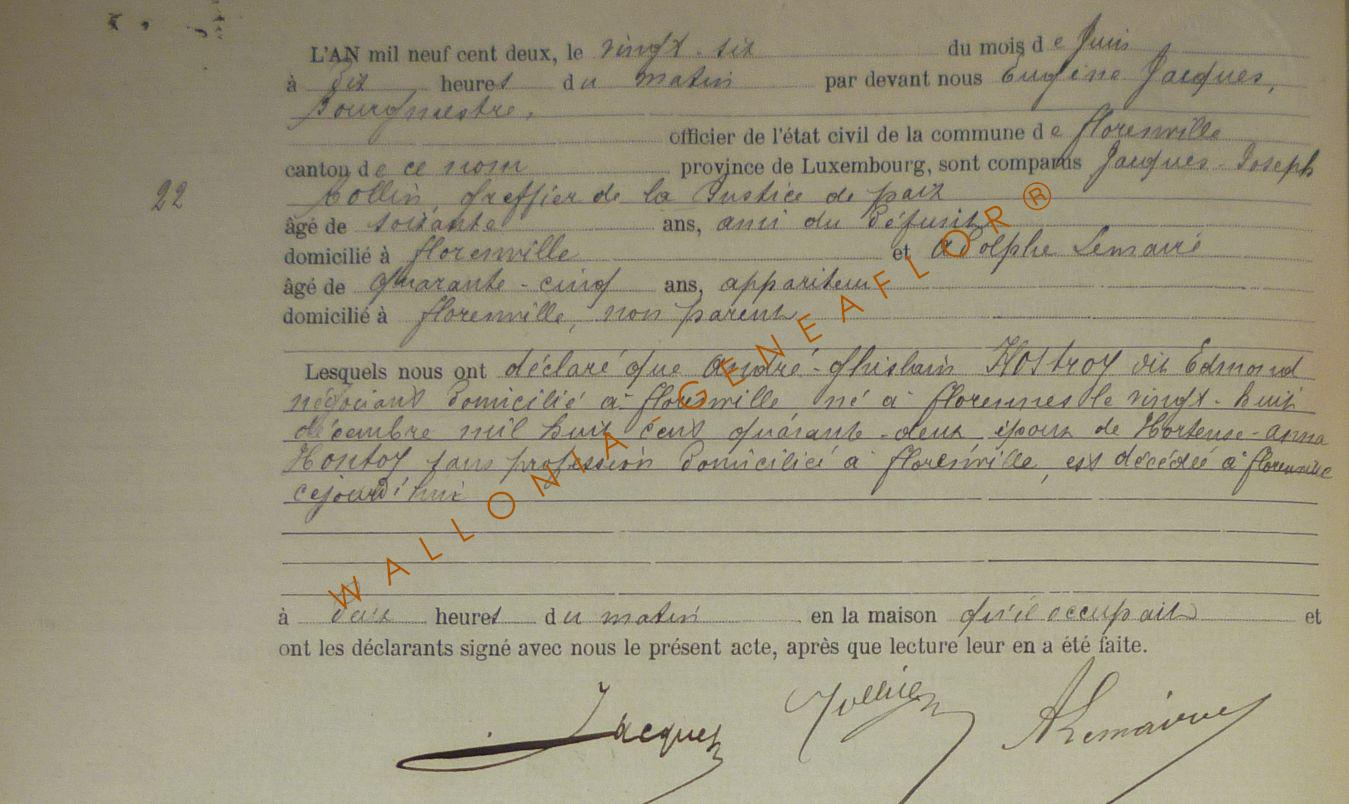 L'AN mil neuf cent deux, le vingt-six du mois de Juin
à dix heures du matin par devant nous Eugène Jacques,
Bourgmestre,
officier de l'état civil de la commune de florenville
canton de ce nom province de Luxembourg, sont comparus Jacques-Joseph
22
Collin, Greffier de la Justice de paix
âgé de soixante ans, ami du défunt
domicilié à florenville et Adolphe Lemaire
âgé de quarante-cinq ans, appariteur
domicilié à florenville, non parent
Lesquels nous ont déclaré que André-Ghislain dit Edmond
négociant domicilié à florenville né à florennes le vingt-huit
décembre mil huit cent quarante-deux, époux de Hortense-Anna
sans profession domiciliée à florenville, est décédé à florenville
cejourd'hui
à heures du matin en la maison qu'il occupait et
ont les déclarants signé avec nous le présent acte, après que lecture leur en a été faite.
Jacques Collin ALemaire
WALLONIA GENEAFLOR®